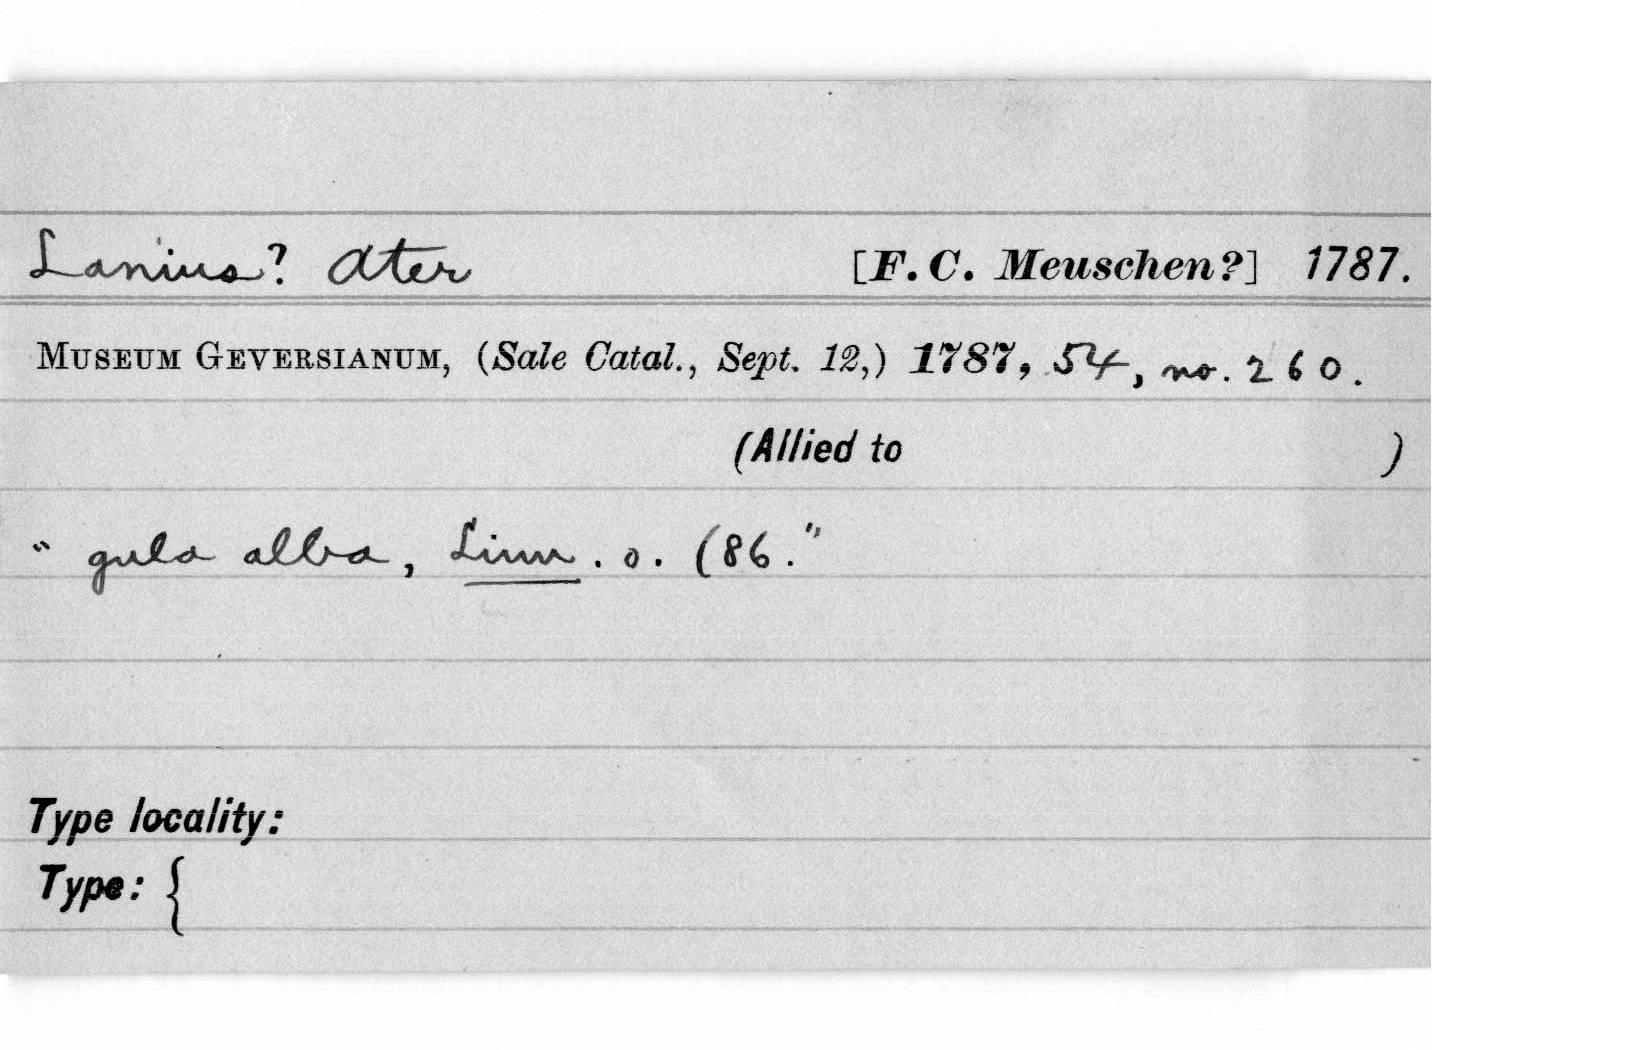 Lanius? ater [F. C. Meuschen?] 1787.
MUSEUM GEVERSIANUM, (Sale Catal., Sept. 12,) 1787, 54, no. 260.
(Allied to )
"gula alba, Linn. o. (86."
Type locality:
Type: {